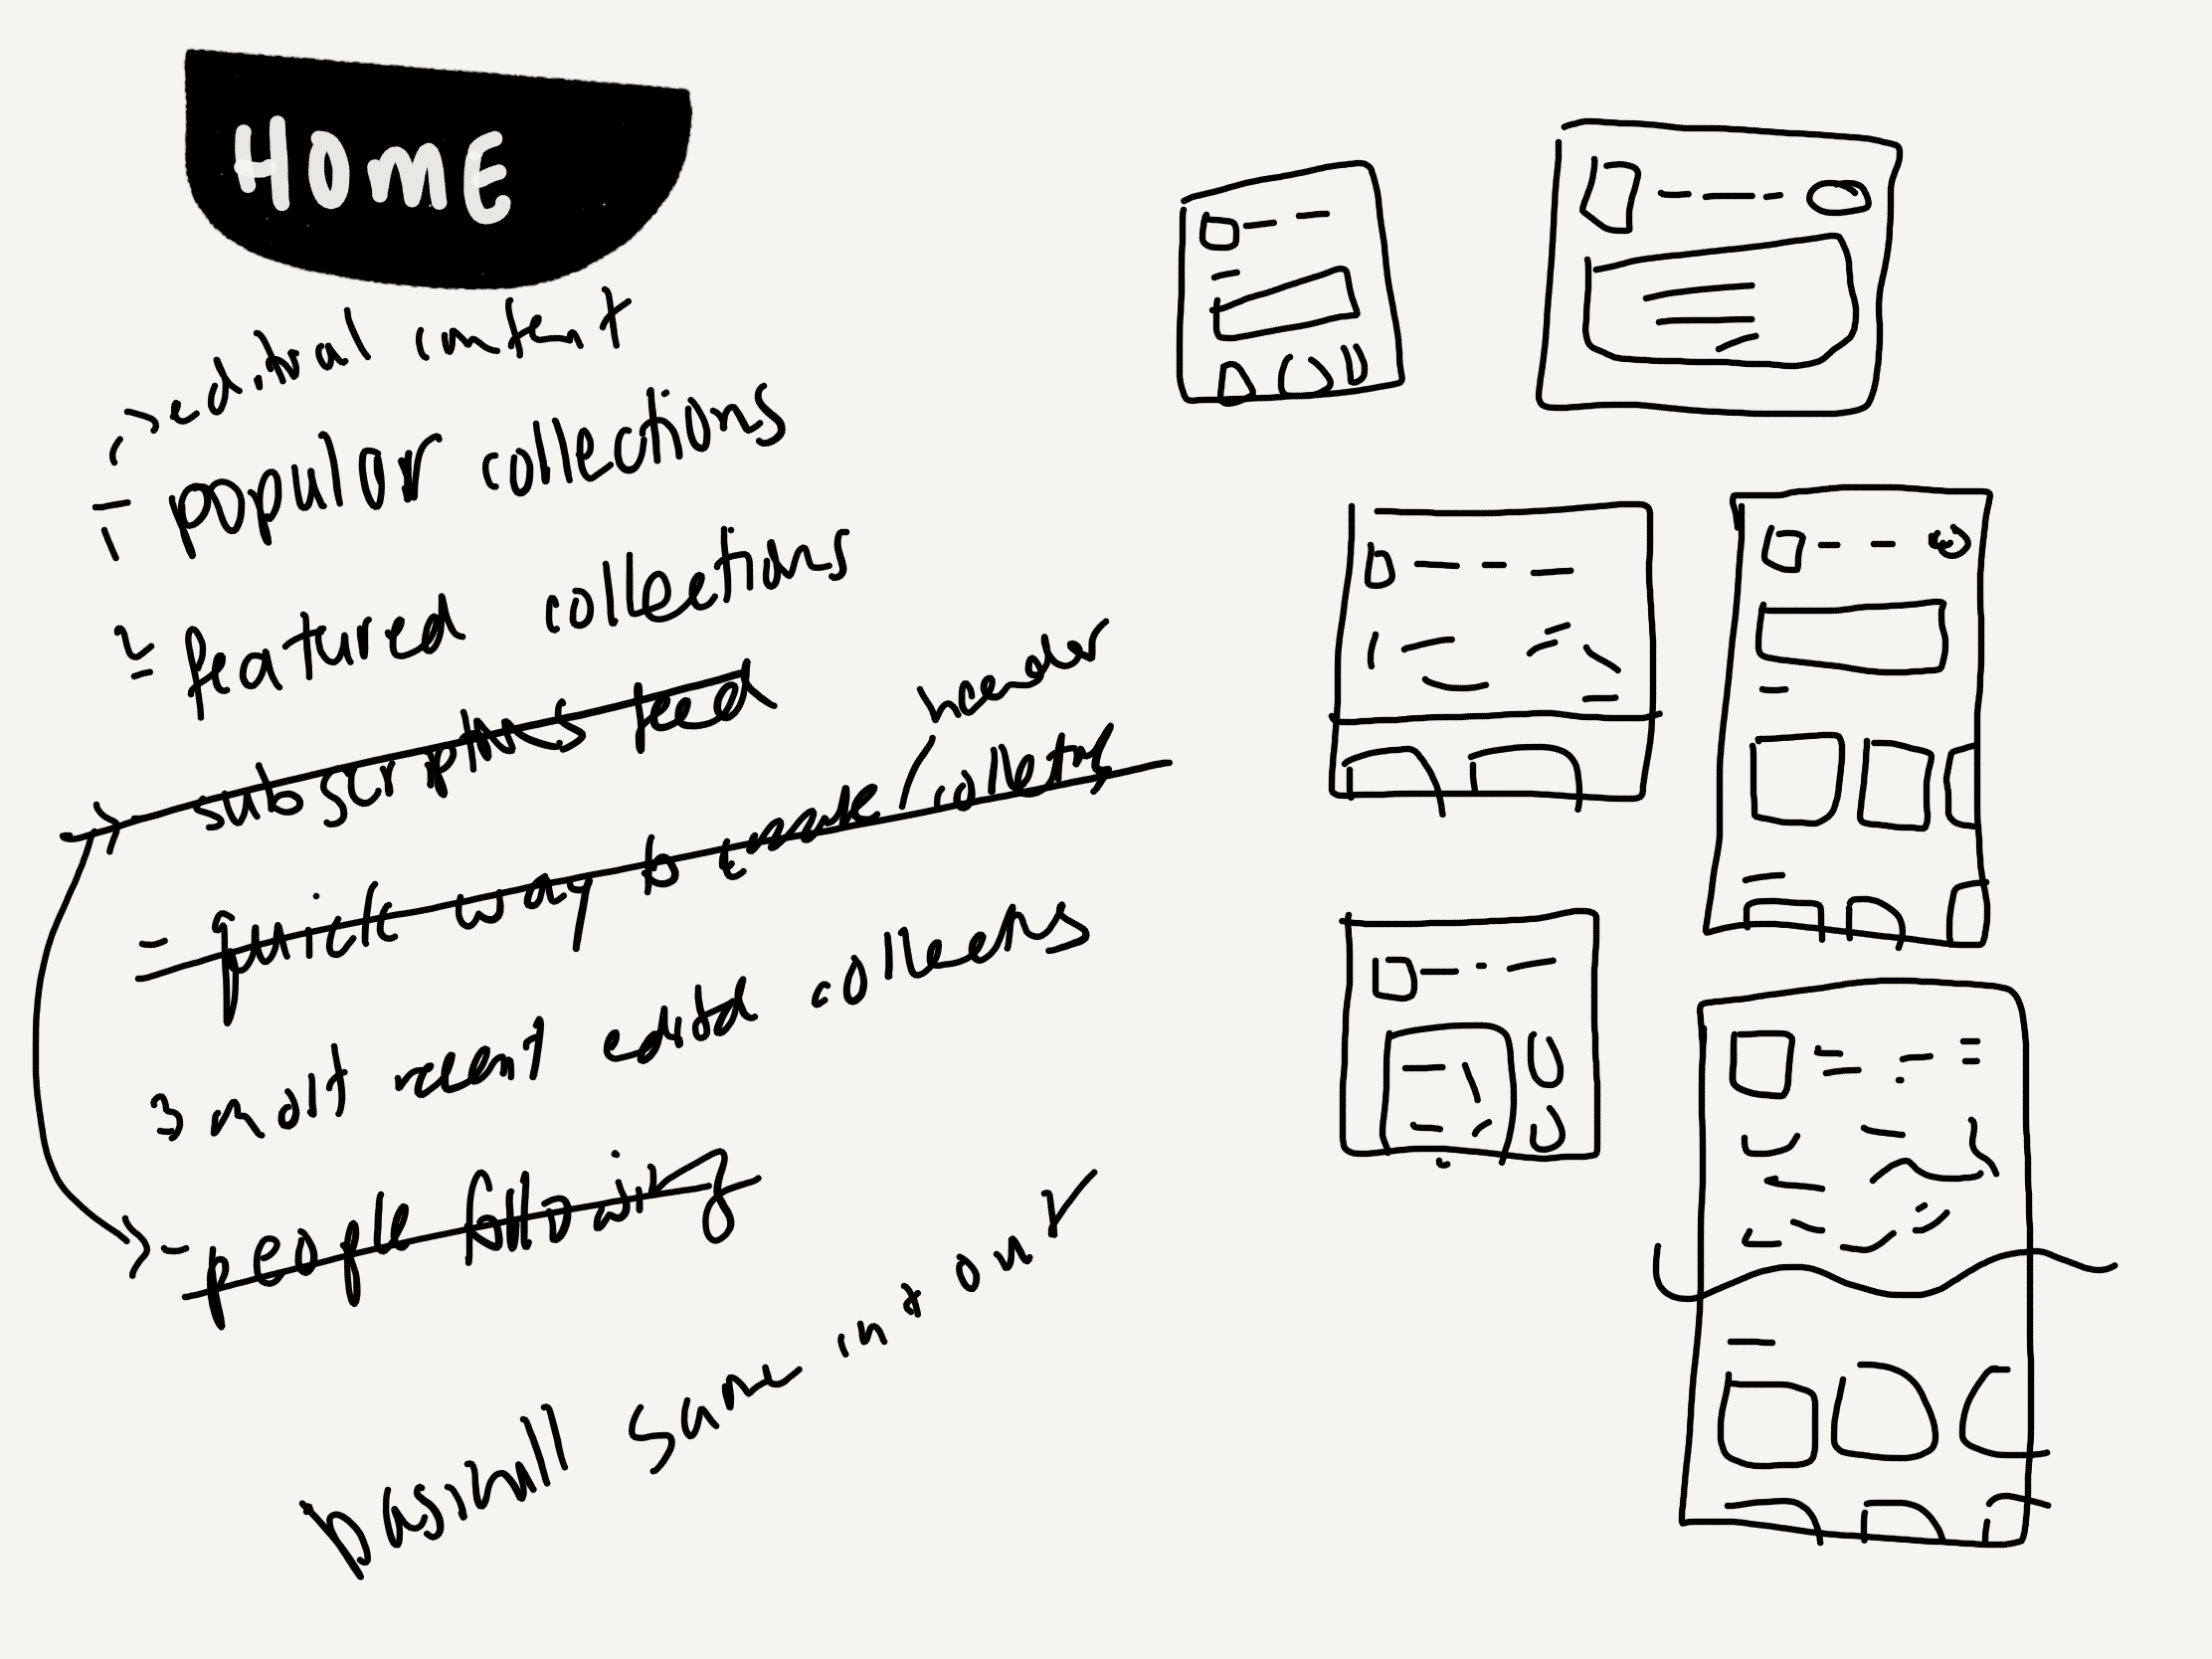 HOME
editorial content
popular collections
featured collections
subscriptions feed
header
quick way to create collectn
most recent edited collecens
people following
basically same in + out